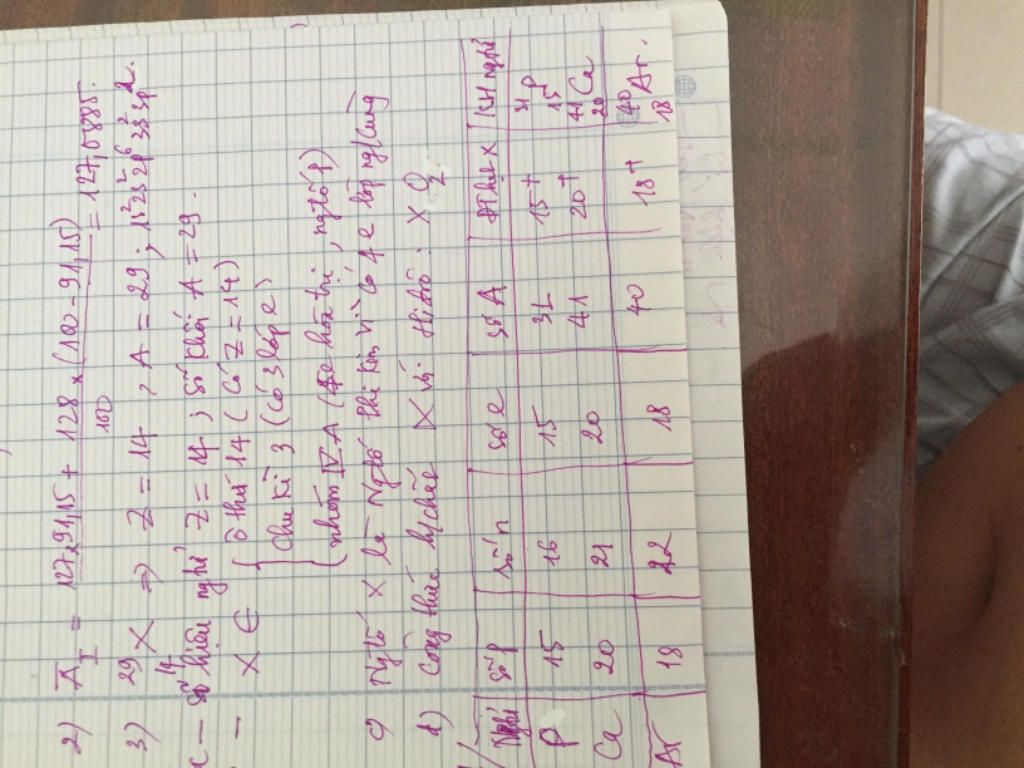 2) A̅I = 127×91,15 + 128×(100-91,15) / 100 = 127,0885.
3) 29 14 X ⇒ Z = 14 , A = 29 ; 1s² 2s² 2p⁶ 3s² 3p².
- Số hiệu ngtử Z = 14 ; Số khối A = 29 .
- X ∈ { Ô thứ 14 ( Có Z = 14)
Chu kì 3 (Có 3 lớp e)
nhóm IV A ( e hóa trị , ngtố p)
c) Ngtố X là Ngtố vì có 4 e lớp ng/cùng
d) Công thức h/chất X với Hiđrô : X O2
Ngtử | Số p | Số n | Số e | Số A | Đthn X | KH ngtử
P | 15 | 16 | 15 | 31 | 15+ | 31 15 P
Ca | 20 | 21 | 20 | 41 | 20+ | 41 20 Ca
Ar | 18 | 22 | 18 | 40 | 18+ | 40 18 Ar.